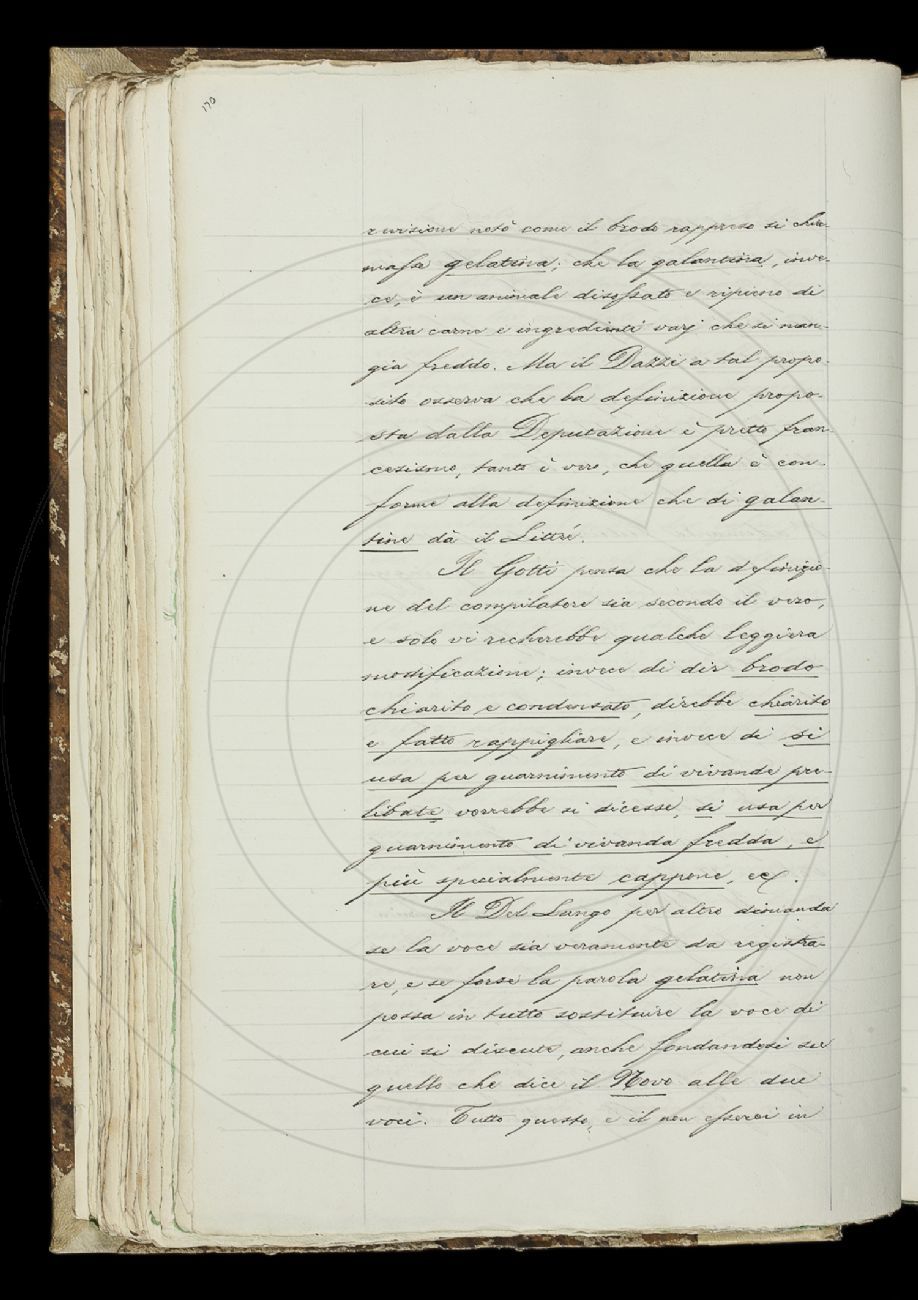 170
revisione notò come il brodo rappreso si chia-
massa gelatina; che la galantina, inve-
ce, è un animale disossato e ripieno di
altra carne e ingredienti varj che si man-
gia freddo. Ma il Dazzi a tal propo-
sito osserva che la definizione propo-
sta dalla Deputazione è pretto fran-
cesismo, tanto è vero, che quella è con-
forme alla definizione che di galan-
tine dà il Littré.
Il Gotti pensa che la definizio-
ne del compilatore sia secondo il vero,
e solo vi recherebbe qualche leggiera
modificazione; invece di dir brodo
chiarito e condensato, direbbe chiarito
e fatto rappigliare, e invece di si
usa per guarnimento di vivande pre-
libate vorrebbe si dicesse, si usa per
guarnimento di vivanda fredda, e
più specialmente cappone, ec.
Il Del Lungo per altro dimanda
se la voce sia veramente da registra-
re, e se forse la parola gelatina non
possa in tutto sostituire la voce di
cui si discute, anche fondandosi su
quello che dice il Novo alle due
voci. Tutto questo, e il non esserci in